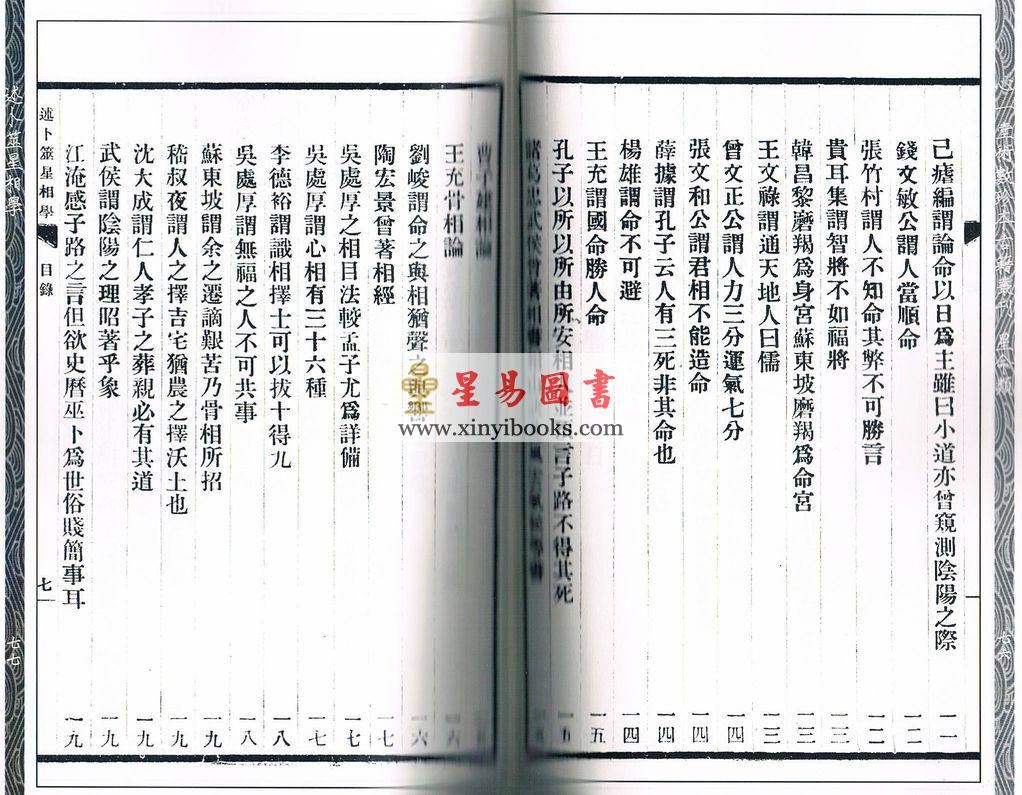 己瘧編謂論命以日爲主雖曰小道亦曾窺測陰陽之際 一一
錢文敏公謂人當順命 一二
張竹村謂人不知命其弊不可勝言 一二
貴耳集謂智將不如福將 一三
韓昌黎磨羯爲身宮蘇東坡磨羯爲命宮 一三
王文祿謂通天地人曰儒 一三
曾文正公謂人力三分運氣七分 一四
張文和公謂君相不能造命 一四
薛據謂孔子云人有三死非其命也 一四
楊雄謂命不可避 一四
王充謂國命勝人命 一五
孔子以所以所由所安相 言子路不得其死 一五
諸葛忠武侯曾著相書
曹子建相論
王充骨相論
劉峻謂命之與相猶聲之與響 一六
陶宏景曾著相經 一七
吳處厚之相目法較孟子尤爲詳備 一七
吳處厚謂心相有三十六種 一七
李德裕謂識相擇士可以拔十得九 一八
吳處厚謂無福之人不可共事 一八
蘇東坡謂余之遷謫艱苦乃骨相所招 一九
嵇叔夜謂人之擇吉宅猶農之擇沃土也 一九
沈大成謂仁人孝子之葬親必有其道 一九
武侯謂陰陽之理昭著乎象 一九
江淹感子路之言但欲史曆巫卜爲世俗賤簡事耳 一九
述卜筮星相學 目錄 七
述卜筮星相學
七七
七六
星易圖書
www.xinyibooks.com